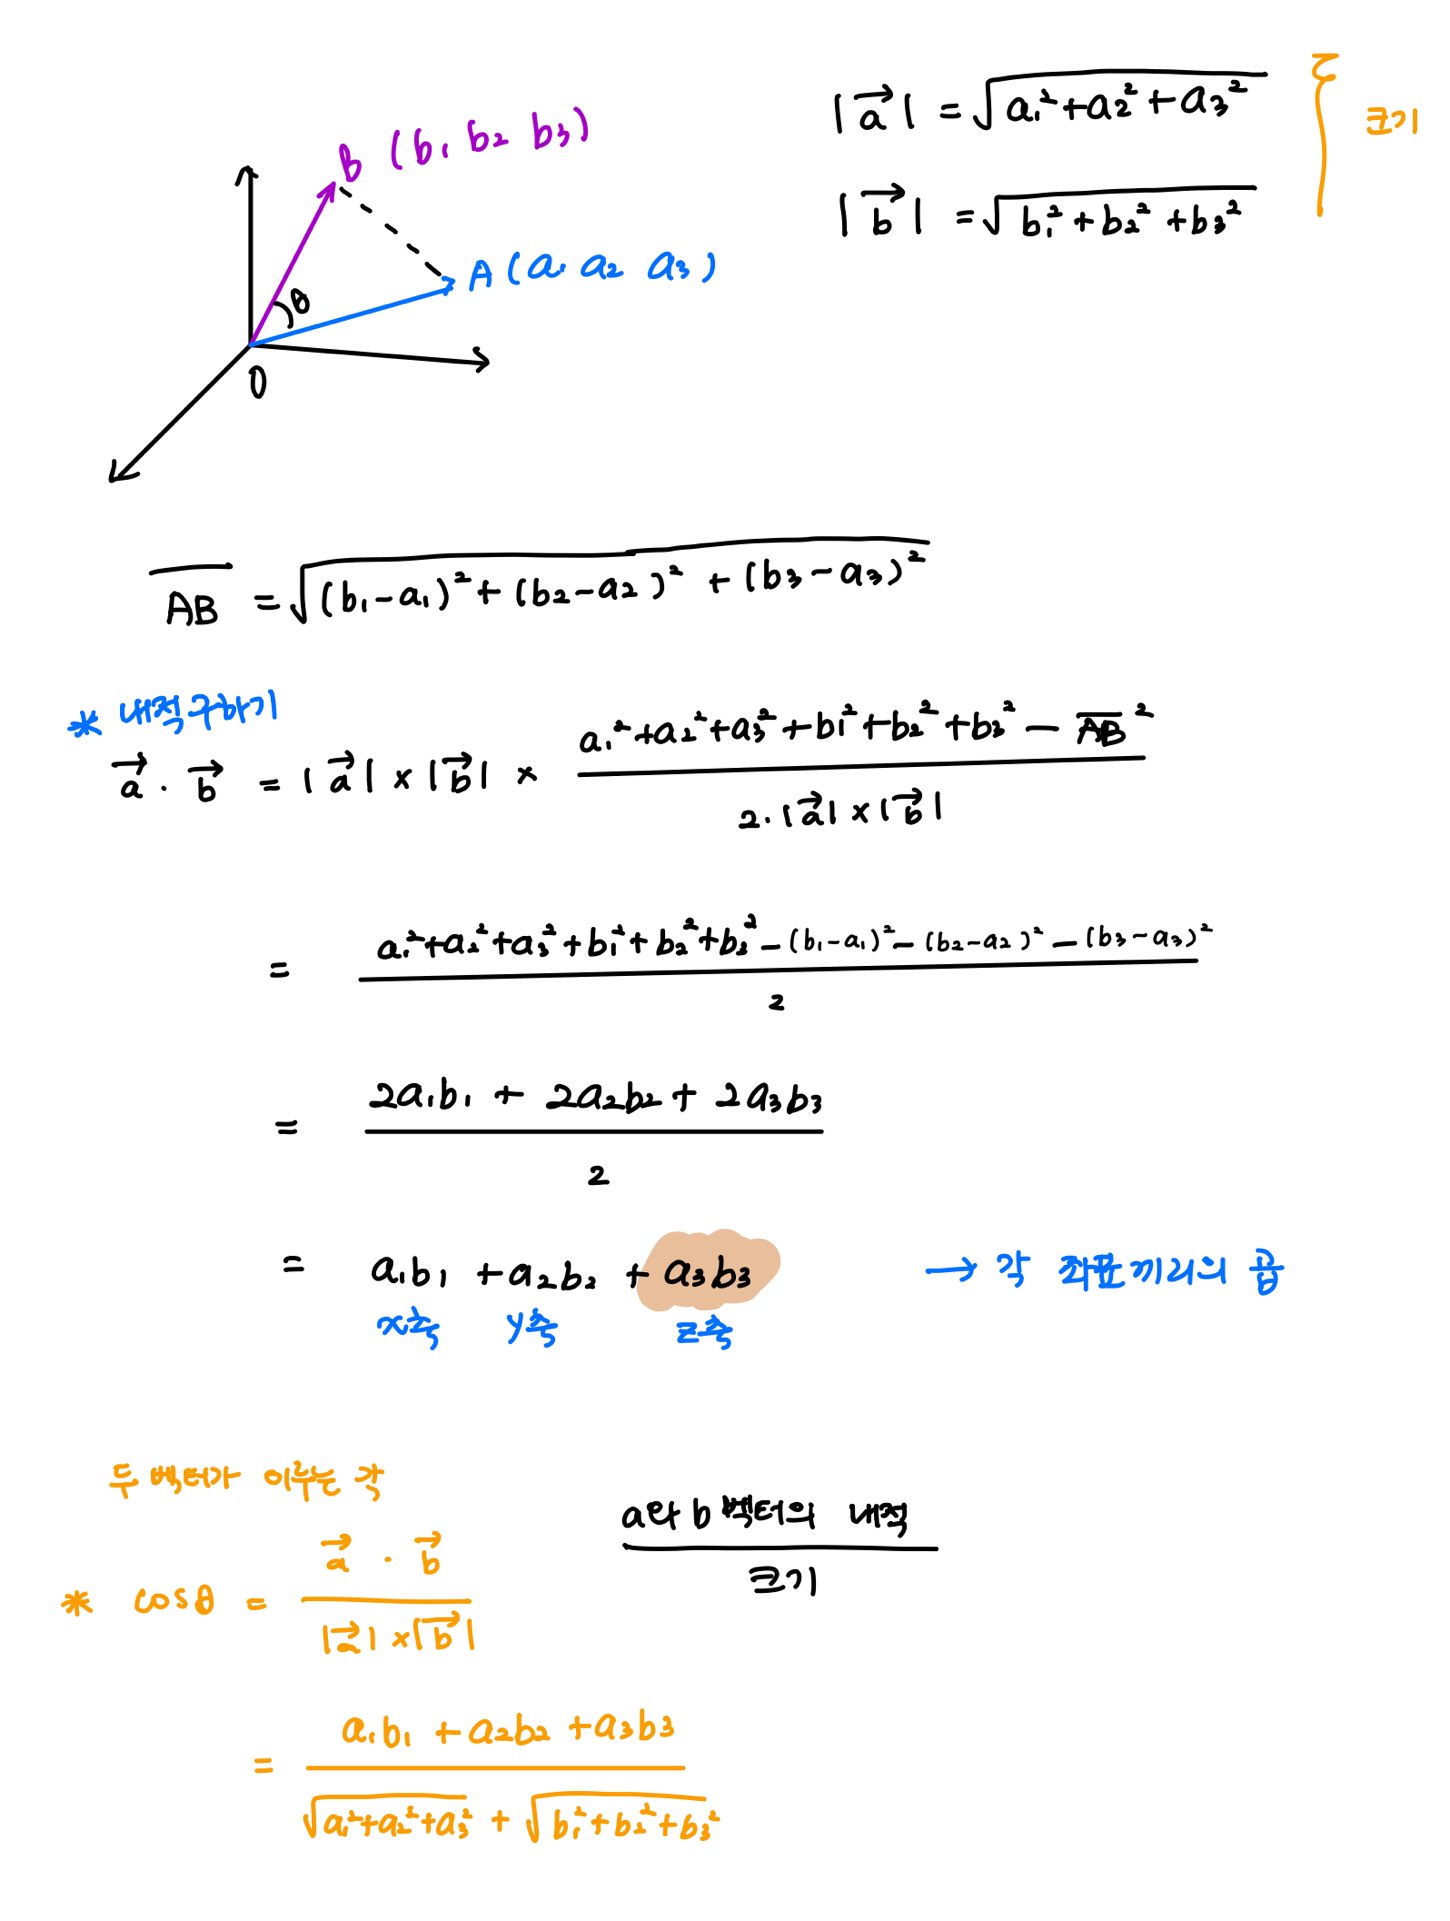 |a⃗| = √(a₁² + a₂² + a₃²)
크기
|b⃗| = √(b₁² + b₂² + b₃²)
B (b₁ b₂ b₃)
A (a₁ a₂ a₃)
θ
O
A̅B̅ = √((b₁-a₁)² + (b₂-a₂)² + (b₃-a₃)²)
* 내적구하기
a⃗ · b⃗ = |a⃗| × |b⃗| × (a₁² + a₂² + a₃² + b₁² + b₂² + b₃² - A̅B̅²) / (2·|a⃗| × |b⃗|)
= (a₁² + a₂² + a₃² + b₁² + b₂² + b₃² - (b₁-a₁)² - (b₂-a₂)² - (b₃-a₃)²) / 2
= (2a₁b₁ + 2a₂b₂ + 2a₃b₃) / 2
= a₁b₁ + a₂b₂ + a₃b₃ → 각 좌표끼리의 곱
x축 y축 z축
두 벡터가 이루는 각
* cosθ = (a⃗ · b⃗) / (|a⃗| × |b⃗|)
a와 b 벡터의 내적
크기
= (a₁b₁ + a₂b₂ + a₃b₃) / (√(a₁² + a₂² + a₃²) + √(b₁² + b₂² + b₃²))